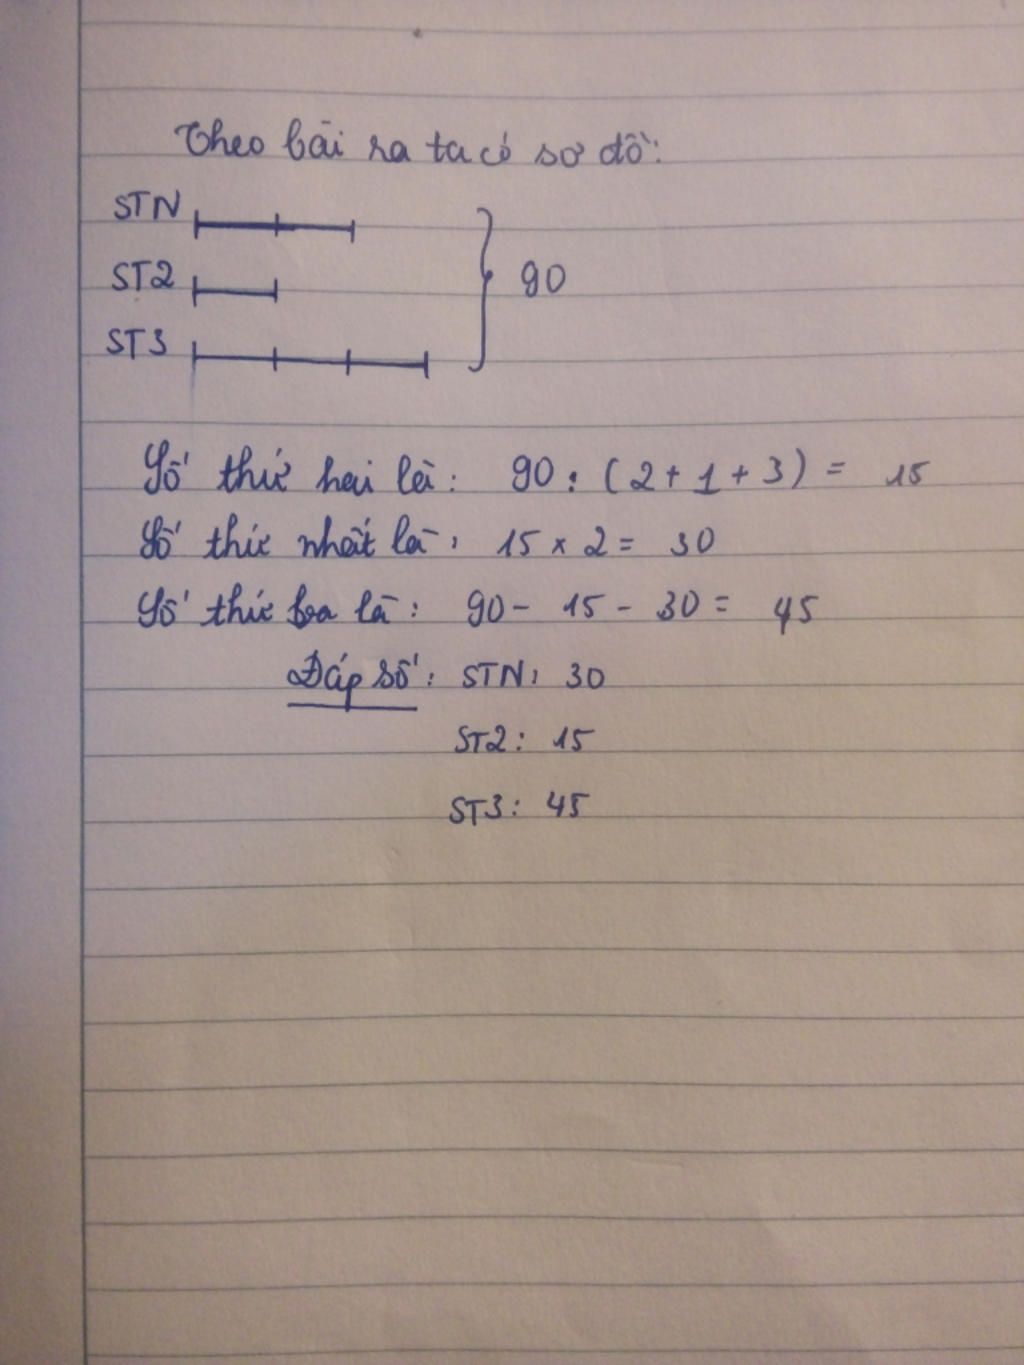 Theo bài ra ta có sơ đồ:
STN
ST2
90
ST3
Số thứ hai là: 90 : (2 + 1 + 3) = 15
Số thứ nhất là: 15 x 2 = 30
Số thứ ba là: 90 - 15 - 30 = 45
Đáp số: STN: 30
ST2: 15
ST3: 45